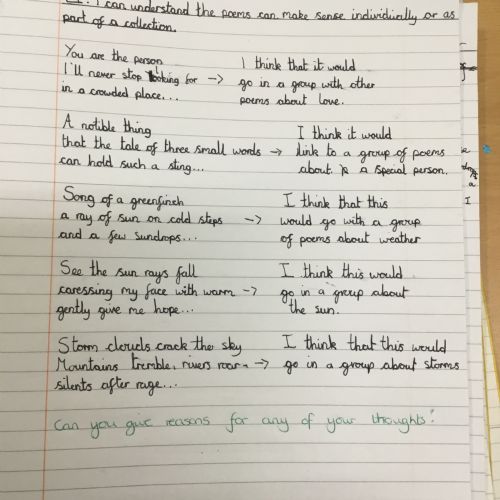 I can understand the poems can make sense individually or as
part of a collection.
You are the person
I'll never stop looking for →
in a crowded place...
I think that it would
go in a group with other
poems about love.
A notible thing
that the tale of three small words →
can hold such a sting...
I think it would
link to a group of poems
about a special person.
Song of a greenfinch
a ray of sun on cold steps →
and a few sundrops...
I think that this
would go with a group
of poems about weather
See the sun rays fall
caressing my face with warm →
gently give me hope...
I think this would
go in a group about
the sun.
Storm clouds crack the sky
Mountains tremble, rivers roar →
silents after rage...
I think that this would
go in a group about storms
Can you give reasons for any of your thoughts?